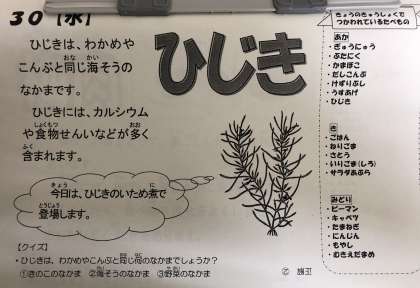 30【水】
ひじき
ひじきは、わかめや
こんぶと同じ海そうの
なかまです。
ひじきには、カルシウム
や食物せんいなどが多く
含まれます。
今日は、ひじきのいため煮で
登場します。
【クイズ】
・ひじきは、わかめやこんぶと同じ何のなかまでしょうか?
①きのこのなかま ②海そうのなかま ③野菜のなかま
答え ②
きょうのきゅうしょくで
つかわれているたべもの
あか
・ぎゅうにゅう
・ぶたにく
・かまぼこ
・だしこんぶ
・けずりぶし
・うすあげ
・ひじき
き
・ごはん
・ねりごま
・さとう
・いりごま(しろ)
・サラダあぶら
みどり
・ピーマン
・キャベツ
・たまねぎ
・にんじん
・もやし
・むきえだまめ